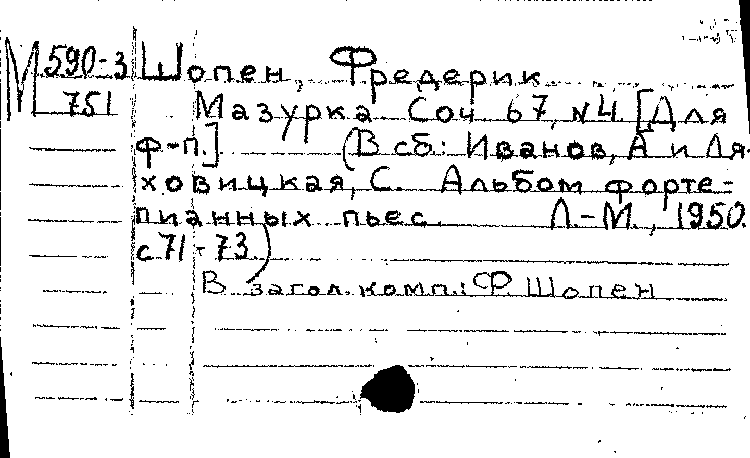 М 590-3 Шопен, Фредерик
751 Мазурка Соч. 67, № 4 [Для
ф-п.] (В сб.: Иванов, А и Ля-
ховицкая, С. Альбом форте-
пианных пьес. Л.-М., 1950.
с 71-73)
В загол. комп.: Ф. Шопен